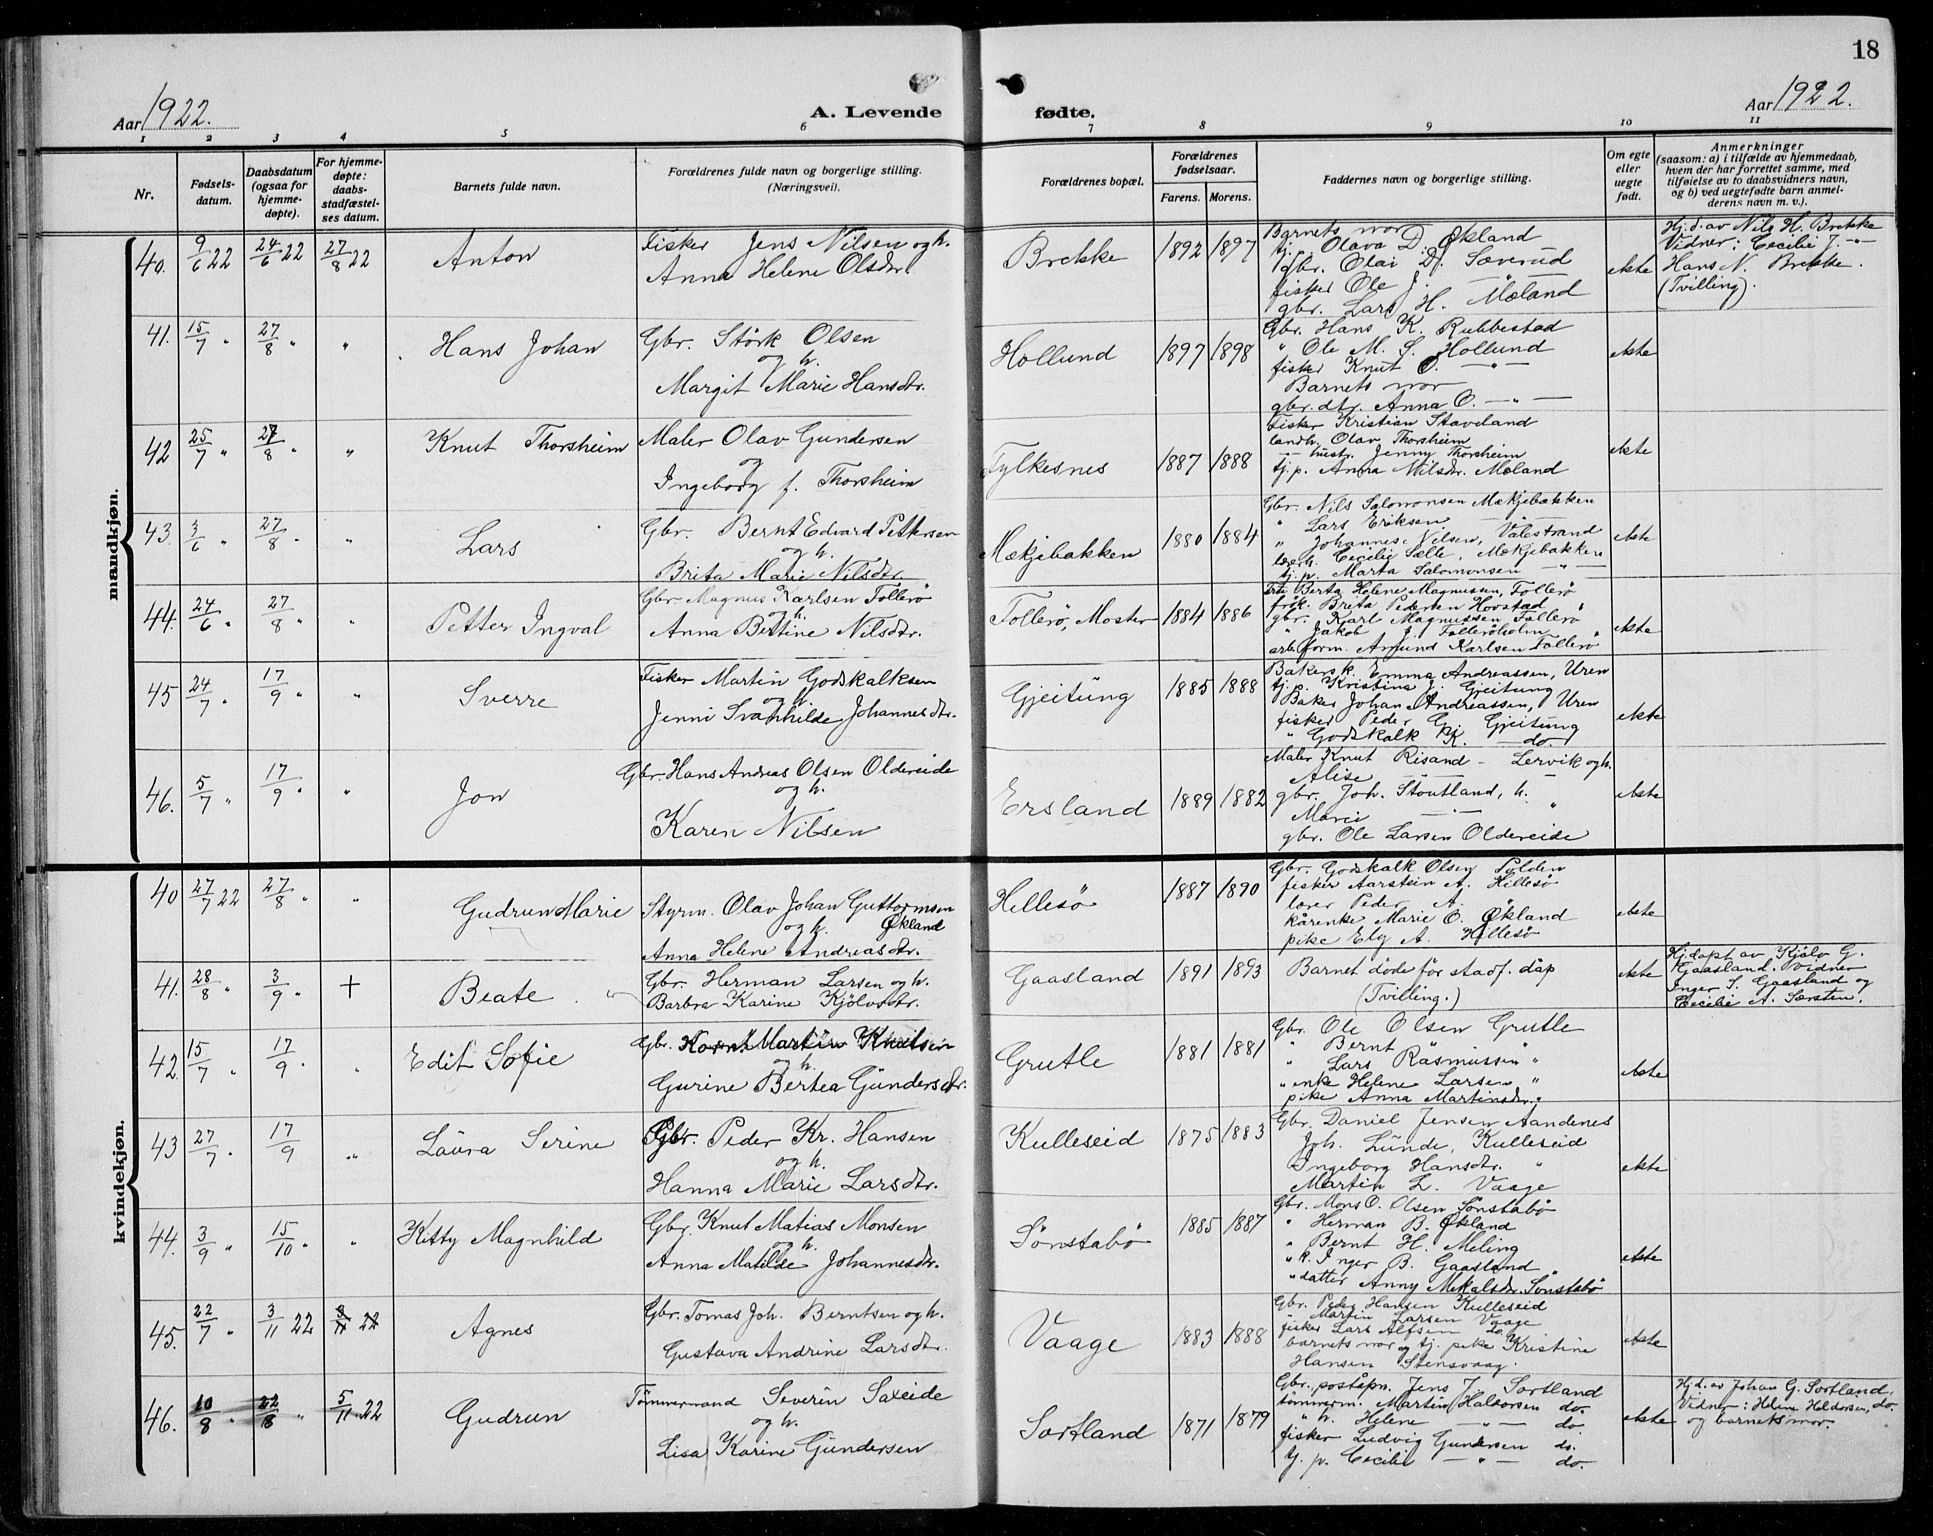 18
Aar 1922.
A. Levende fødte.
Aar 1922.
1 2 3 4 5 6 7 8 9 10 11
Nr.
Fødsels-
datum.
Daabsdatum
(ogsaa for
hjemme-
døpte).
For hjemme-
døpte:
daabs-
stadfæstel-
ses datum.
Barnets fulde navn.
Forældrenes fulde navn og borgerlige stilling.
(Næringsvei).
Forældrenes bopæl.
Forældrenes
fødselsaar.
Farens. Morens.
Faddernes navn og borgerlige stilling.
Om egte
eller
uegte
født.
Anmerkninger
(saasom: a) i tilfælde av hjemmedaab,
hvem der har forrettet samme, med
tilføielse av to daabsvidners navn,
og b) ved uegtefødte barn anmel-
derens navn m. v.).
mandkjøn.
40. 9/6 22 24/6 22 27/8 22 Anton
Fisker Jens Nilsen og h.
Anna Helene Olsdtr.
Brekke 1892 1897
Barnets mor
tj.p. Olava D. Økland
gbr. Olai D. Sæverud
fisker Ole J. — " —
gbr. Lars H. Mæland
ekte
Hj.d. av Nils H. Brekke
Vidner: Cecilie J. — " —
Hans N. Brekke.
(Tvilling).
41. 15/7 " 27/8 " " Hans Johan
Gbr. Störk Olsen
og h.
Margit Marie Hansdtr.
Hollund 1897 1898
Gbr. Hans K. Rubbestad
" Ole M. S. Hollund
fisker Knut O. — " —
Barnets mor
gbr. dtr. Anna O. — " —
ekte
42 25/7 " 27/8 " " Knut Thorsheim
Maler Olav Gundersen
og
Ingeborg f. Thorsheim
Fylkesnes 1887 1888
Fisker Kristian Staveland
landh. Olav Thorsheim
— hustr. Jenny Thorsheim
tj.p. Anna Nilsdtr. Mæland
ekte
43. 3/6 " 27/8 " " Lars
Gbr. Bernt Edvard Pettersen
og h.
Brita Marie Nilsdtr.
Mækjebakken 1880 1884
Gbr. Nils Salomonsen Mækjebakken
" Lars Eriksen — " —
" Johannes Nilsen, Valestrand
Cecilie Sælle, Mækjebakken
tj. p. Marta Salomonsen — " —
ekte
44. 24/6 " 27/8 " " Petter Ingval
Gbr. Magnus Karlsen Tollerö
og h.
Anna Bertine Nilsdtr.
Tollerö, Moster 1884 1886
Berta Helene Magnussen, Tollerö
frök. Brita Pedersen Hovstad
gbr. Karl Magnussen Tollerö
" Jakob J. Tolleröholm
arb.form. Amund Karlsen Tollerö
ekte
45 24/7 " 17/9 " " Sverre
Fisker Martin Godskalksen
og h.
Jenni Svanhilde Johannesdtr.
Gjeitung 1885 1888
Bakersk. Emma Andreassen, Uren
tj. p. Kristina J. Gjeitung
Baker Johan Andreassen, Uren
fisker Peder G. Gjeitung
" Godskalk K. do.
ekte
46. 5/7 " 17/9 " " Jon
Gbr. Hans Andreas Olsen Oldereide
og h.
Karen Nilsen
Ersland 1889 1882
Maler Knut Risand - Lervik og h.
Alise — " —
gbr. Joh. Stoutland, h.
Marie — " —
gbr. Ole Larsen Oldereide
ekte
kvindekjøn.
40 27/7 22 27/8 " " Gudrun Marie
Styrm. Olav Johan Guttormsen
og h. Økland
Anna Helene Andreasdtr.
Hillesö 1887 1890
Gbr. Godskalk Olsen Folden
fisker Aarstein A. Hillesö
lærer Peder A. "
kårenke Marie O. Økland
pike Elg A. Hillesö
ekte
41. 28/8 " 3/9 " + Beate
Gbr. Herman Larsen og h.
Barbra Karine Kjölvsdtr.
Gaasland 1891 1893
Barnet döde för stadf. dåp
(Tvilling.)
ekte
Hj.döpt av Kjölv G.
Gaasland. Vidner
Inger S. Gaasland og
Cecilie A. Særsten.
42. 15/7 " 17/9 " " Edit Sofie
Gbr. Martin Knutsen
og h.
Gurine Bertea Gundersdtr.
Grutle 1881 1881
Gbr. Ole Olsen Grutle
" Bernt " "
" Lars Rasmussen "
" enke Helene Larsen "
pike Anna Martinsdtr. "
ekte
43 27/7 " 17/9 " Laura Serine
Gbr. Peder Kr. Hansen
og h.
Hanna Marie Larsdtr.
Kulleseid 1875 1883
Gbr. Daniel Jensen Aandenes
Joh. Lunde, Kulleseid
Ingeborg Hansdtr. "
Martin L. Vaage
ekte
44. 3/9 " 15/10 " " Kitty Magnhild
Gbr. Knut Matias Monsen
og h.
Anna Matilde Johannesdtr.
Sönstabö 1885 1887
Gbr. Mons O. Olsen Sönstabö
" Herman B. Økland
" Bernt H. Meling
" k. Inger B. Gaasland
" datter Anny Mekalsdtr. Sönstabö
ekte
45. 22/7 " 3/11 22 3/11 22 Agnes
Gbr. Tomas Joh. Berntsen og h.
Gustava Andrine Larsdtr.
Vaage 1883 1888
Gbr. Peder Hansen Kulleseid
" Martin Larsen Vaage
fisker Lars Alfsen do.
barnets mor og tj. pike Kristine
Hansen Stensvaag.
ekte
46. 10/8 " 22/8 " 5/11 22 Gudrun
Tömmermand Severin Saxeide
og h.
Lisa Karine Gundersen
Sortland 1871 1879
Gbr. poståpn. Jens J. Sortland
tömmerm. Martin Haldorsen do.
" h. Helene — " — do.
fisker Ludvig Gundersen do.
tj. p. Cecilie — " — do.
ekte
Hj.d. av Johan G. Sortland.
Vidner: Helene Heldorsen, do.
og barnets mor.